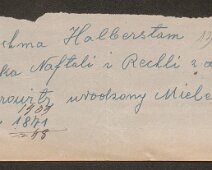 chma Halberstam 19
ka Naftali i Rechli z d
rowitz urodzony Miele
1909
1841
68